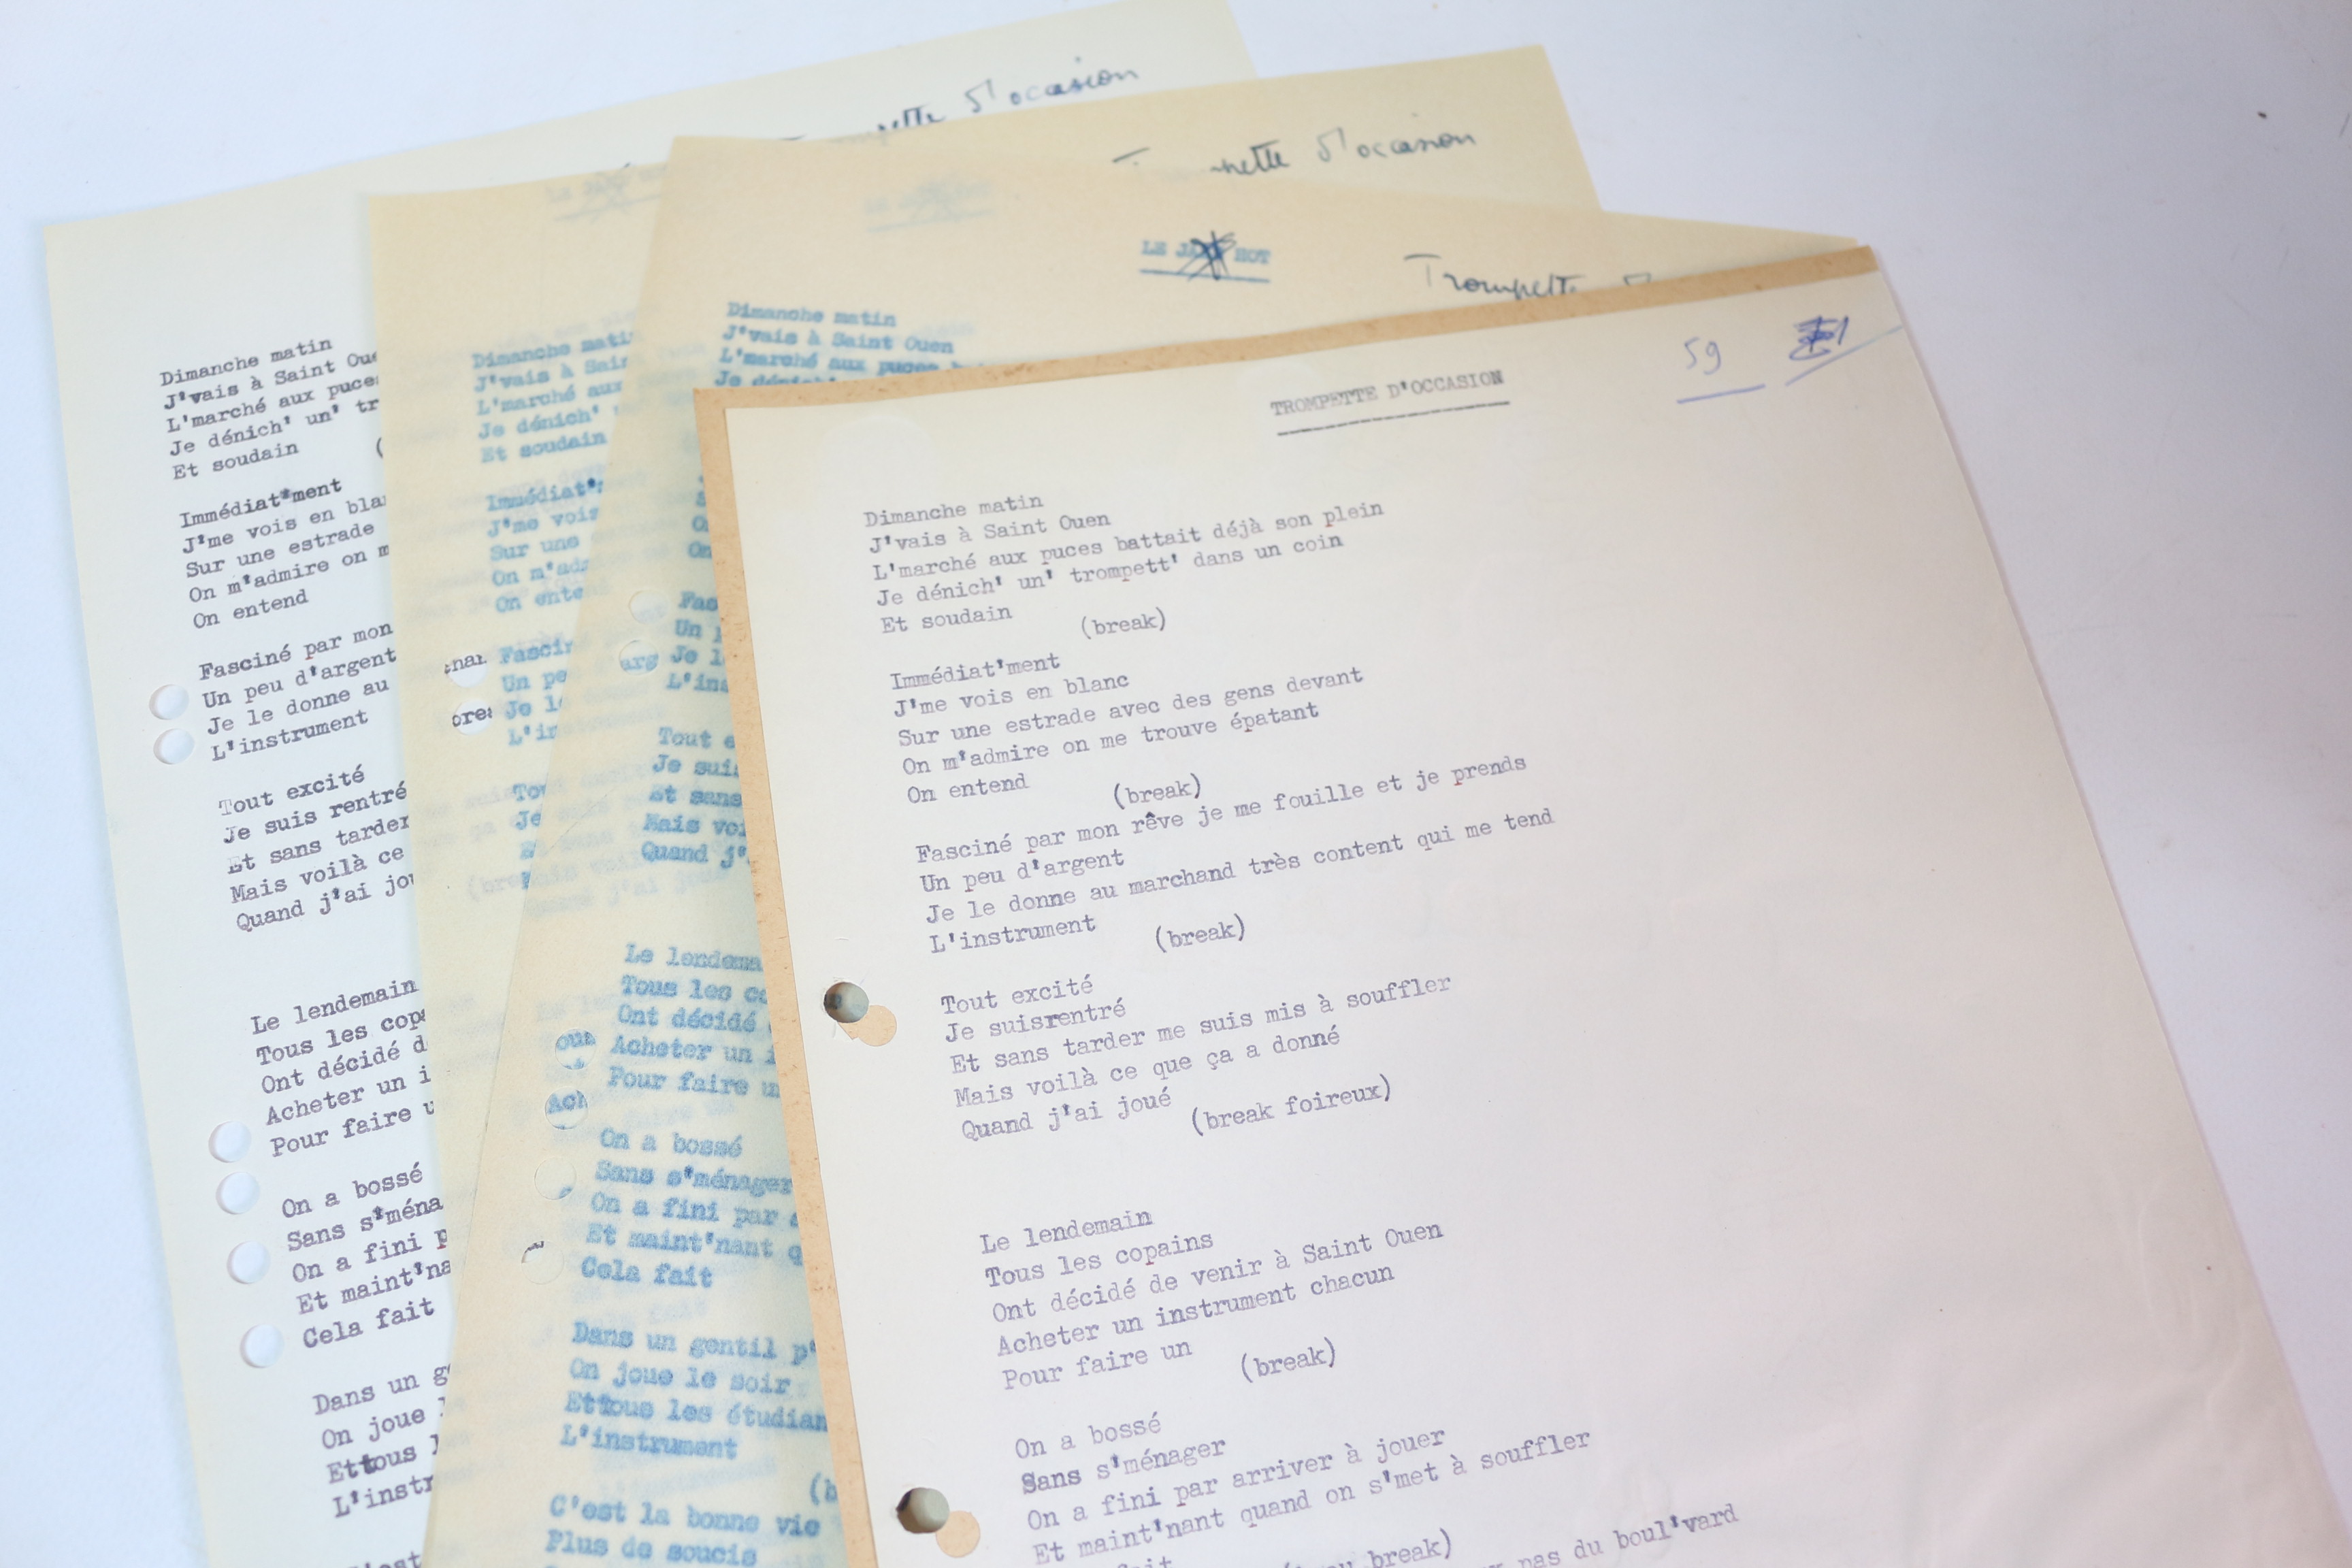 d'occasion
d'occasion
LE HOT
Trompette
Dimanche matin
J'vais à Saint Oue
L'marché aux puces
Je dénich' un' tr
Et soudain
(
Immédiat'ment
J'me vois en bla
Sur une estrade
On m'admire on m
On entend
Fasciné par mon
Un peu d'argent
Je le donne au
L'instrument
Tout excité
Je suis rentré
Et sans tarder
Mais voilà ce
Quand j'ai jou
Le lendemain
Tous les copa
Ont décidé d
Acheter un i
Pour faire u
On a bossé
Sans s'ména
On a fini p
Et maint'na
Cela fait
Dans un g
On joue l
Ettous l
L'instr
Dimanche matin
J'vais à Sain
L'marché aux
Je dénich'
Et soudain
Immédiat'
J'me vois
Sur une
On m'ad
On ente
Fascin
Un pe
Je l
L'in
To
Je
Dimanche matin
J'vais à Saint Ouen
L'marché aux puces
Je dénich'
Fas
Un
Je l
L'ins
Tout e
Je sui
Et sans
Mais voi
Quand j'
Le lendema
Tous les co
Ont décidé
Acheter un i
Pour faire u
On a bossé
Sans s'ménager
On a fini par a
Et maint'nant q
Cela fait
Dans un gentil p'
On joue le soir
Ettous les étudian
L'instrument
(b
C'est la bonne vie
Plus de soucis
59
TROMPETTE D'OCCASION
Dimanche matin
J'vais à Saint Ouen
L'marché aux puces battait déjà son plein
Je dénich' un' trompett' dans un coin
Et soudain
(break)
Immédiat'ment
J'me vois en blanc
Sur une estrade avec des gens devant
On m'admire on me trouve épatant
On entend
(break)
Fasciné par mon rêve je me fouille et je prends
Un peu d'argent
Je le donne au marchand très content qui me tend
L'instrument
(break)
Tout excité
Je suisrentré
Et sans tarder me suis mis à souffler
Mais voilà ce que ça a donné
Quand j'ai joué
(break foireux)
Le lendemain
Tous les copains
Ont décidé de venir à Saint Ouen
Acheter un instrument chacun
Pour faire un
(break)
On a bossé
Sans s'ménager
On a fini par arriver à jouer
Et maint'nant quand on s'met à souffler
break)
pas du boul'vard